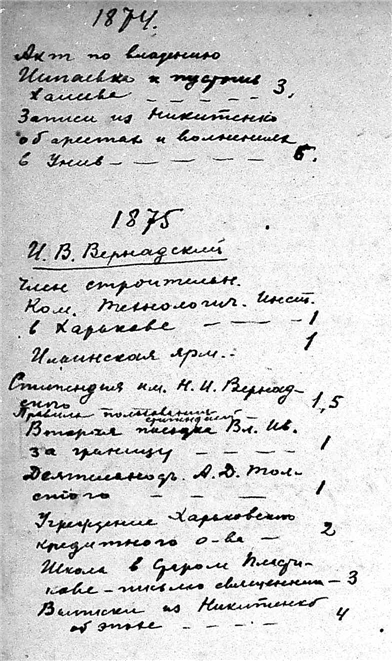 1874.
Акт по владению
Шигаевка и пустошь
_ _ _ _ _ _ 3.
Записи из Никитенко
об арестах и волнениях
в Унив. _ _ _ _ _ 5.
1875
И. В. Вернадский
Член строительн.
Ком. Технологич. Инст.
в Харькове _ _ _ 1
Ильинская ярм.. 1
Стипендия им. Н. И. Вернад-
ского 1,5
Правила пользования стипендией
Вторая поездка Вл. Ив.
за границу _ _ _ _ 1
Деятельность А. Д. Тол-
стого _ _ _ 1
Учреждение Харьковского
кредитного о-ва _ 2
Школа в Старом
_ письмо священника _ 3
Выписки из Никитенко
об этом _ _ _ _ 4